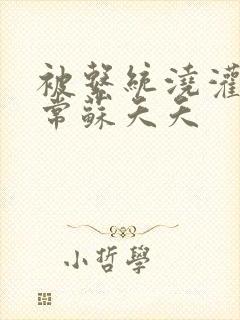 被繫統澆灌
常蘇天天
小哲學